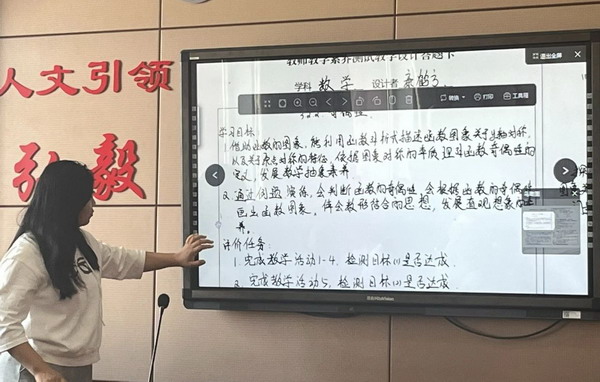 人文引领
弘毅
教师教学素养测试教学设计答题卡
学科 数学 设计者
退出全屏
转换 打印 工具箱
3.2.2 奇偶性
学习目标:
1.借助函数的图象,能利用函数解析式描述函数图象关于y轴对称,
以及关于原点对称的特征,依据图象对称的 函数奇偶性的
定义,发展数学抽象素养
2.通过例题演练,会判断函数的奇偶性,会根据函数的奇偶性
画出函数图象,体会数形结合的思想,发展直观想象的素
养。
评价任务:
1.完成教学活动1-4,检测目标(1)是否达成
2.完成教学活动5,检测目标(2)是否达成